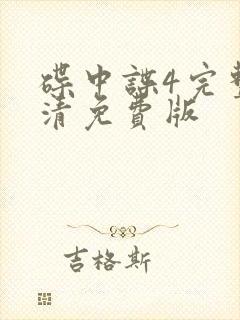 碟中諜4完整
清免費版
吉格斯